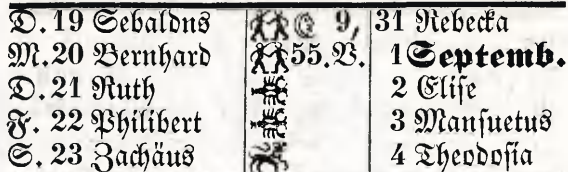 D. 19 Sebaldus 9, 31 Rebecka
M. 20 Bernhard 55. V. 1 Septemb.
D. 21 Ruth 2 Elise
F. 22 Philibert 3 Mansuetus
S. 23 Zachäus 4 Theodosia